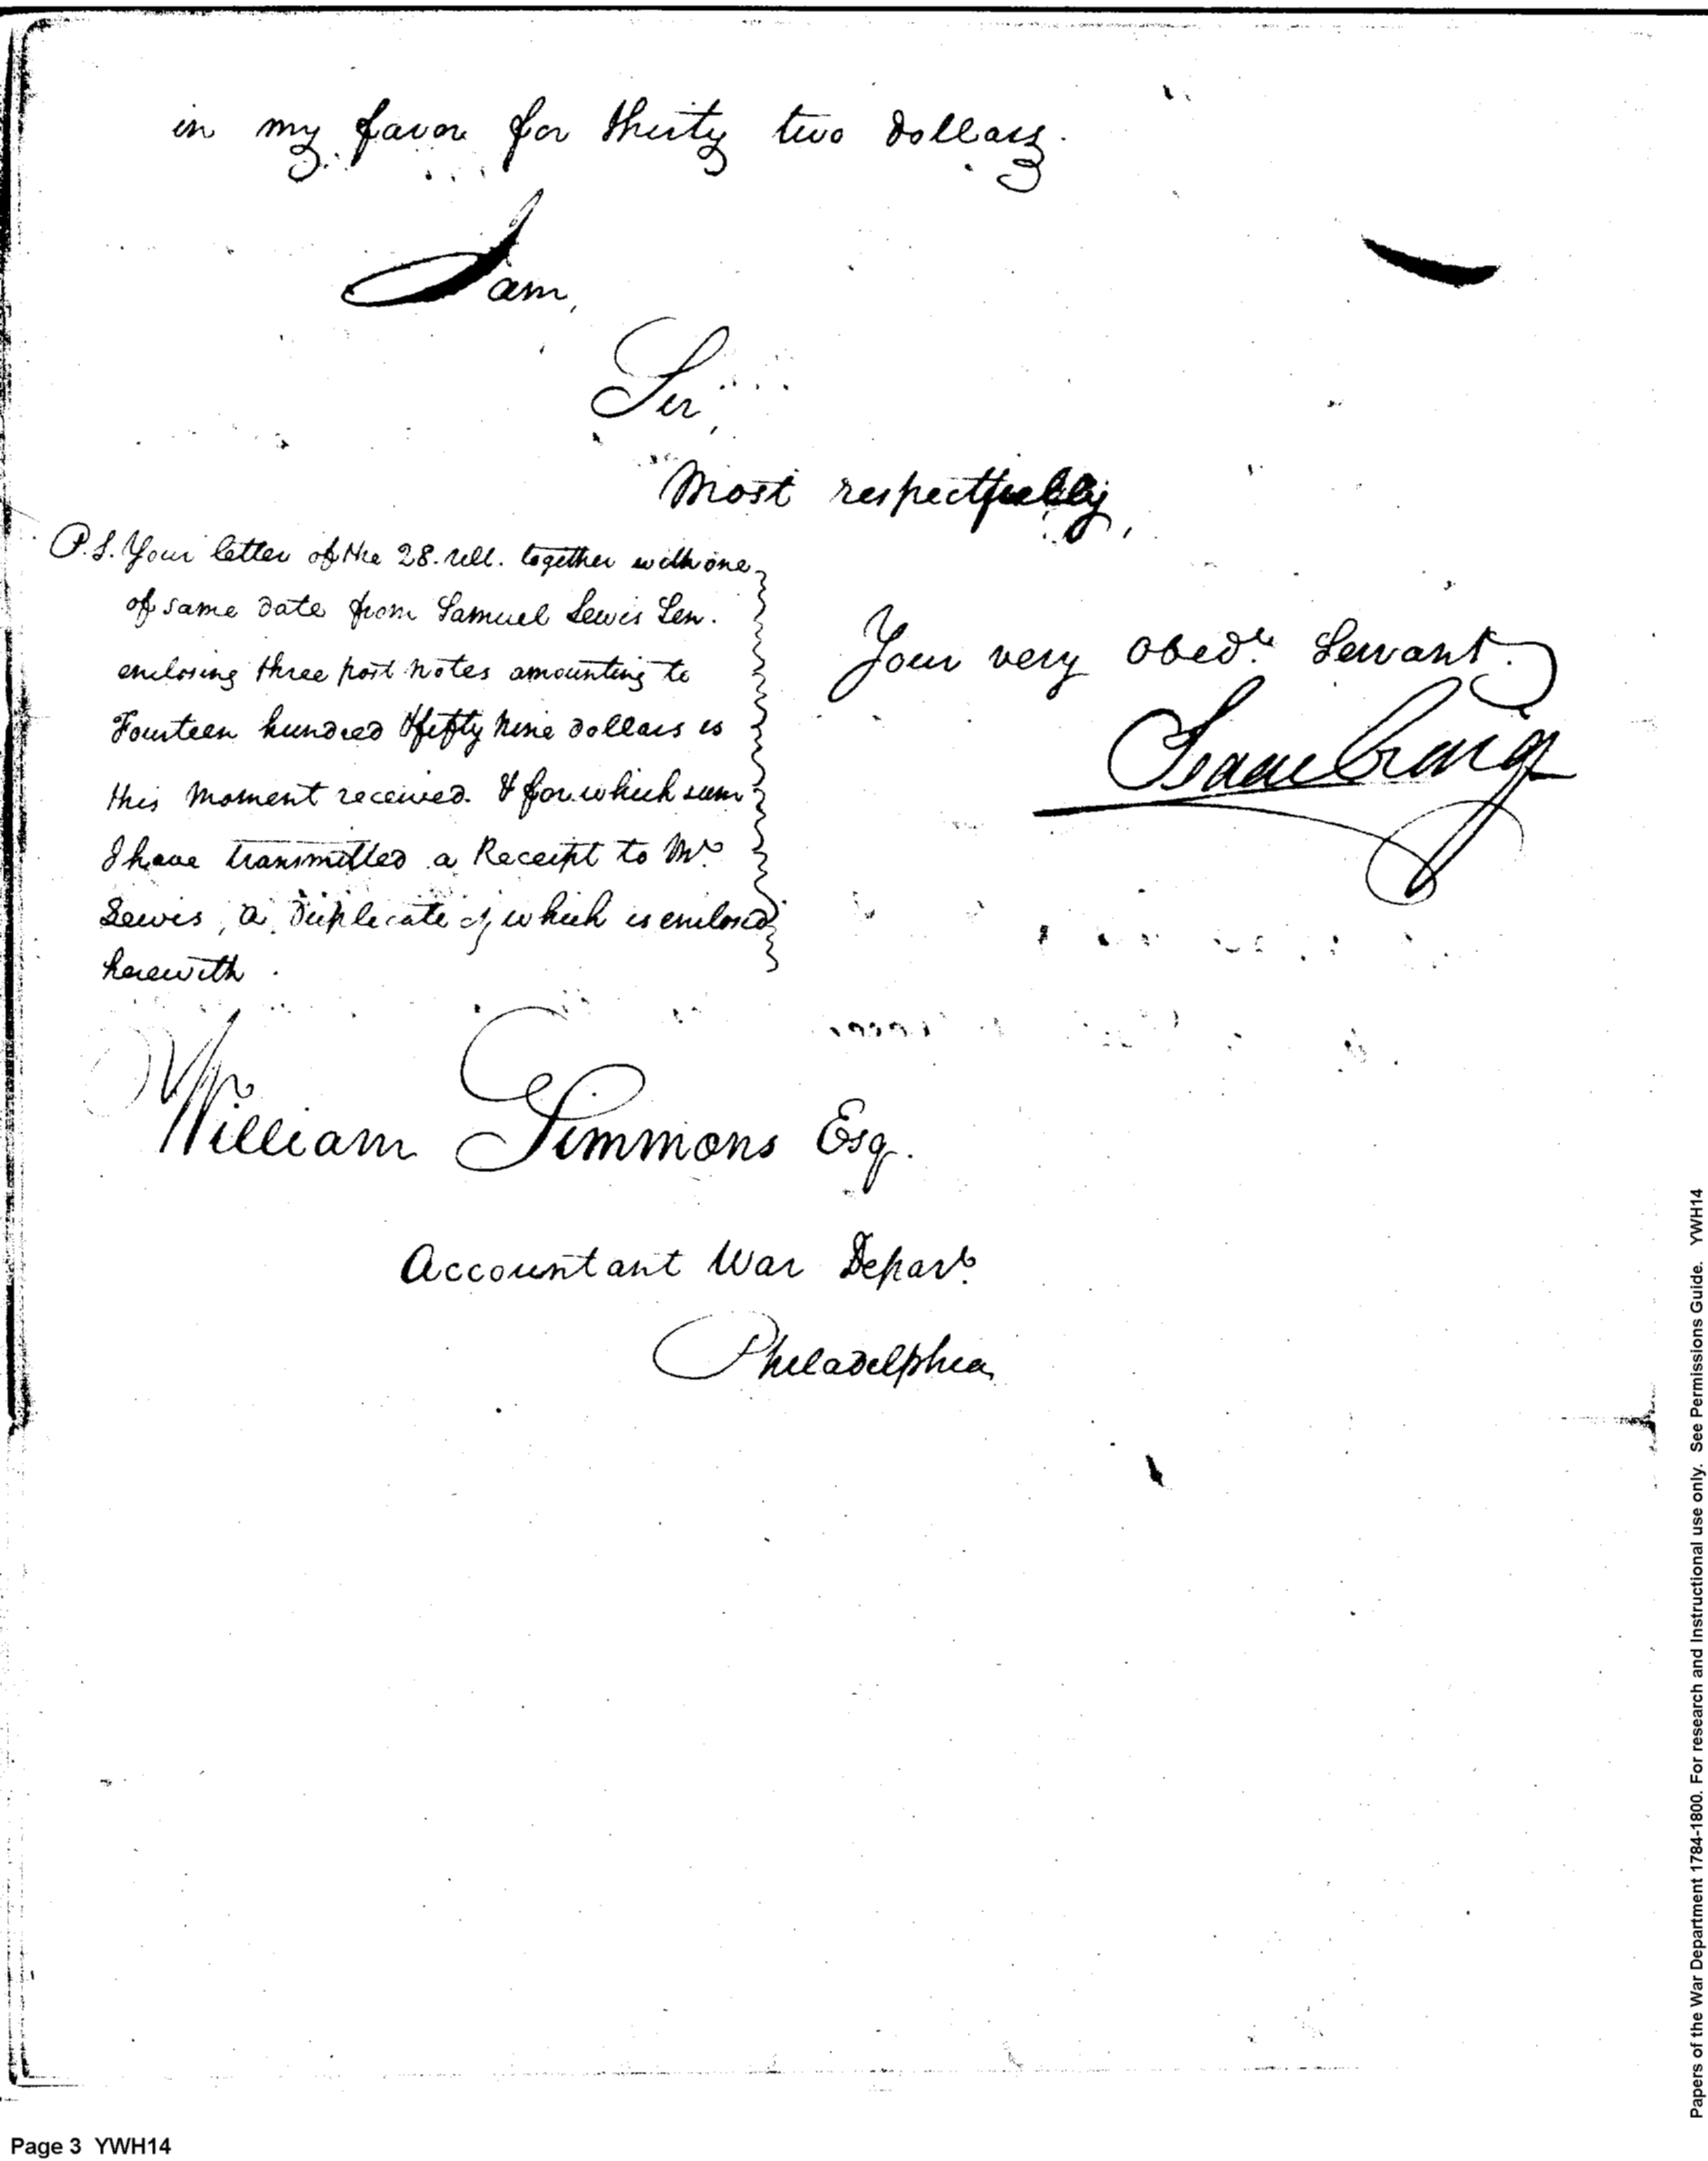 in my favor for thirty two dollars.
I am,
Sir,
Most respectfully,
Your very obedt. Servant.
Isaac Craig
P.S. Your letter of the 28. ult. together with one
of same date from Samuel Lewis Sen.
enclosing three post notes amounting to
Fourteen hundred & fifty nine dollars is
this moment received. & for which sum
I have transmitted a Receipt to Mr.
Lewis, a Duplicate of which is enclosed
herewith.
William Simmons Esq.
Accountant War Depart.
Philadelphia
Page 3 YWH14
Papers of the War Department 1784-1800. For research and Instructional use only. See Permissions Guide. YWH14